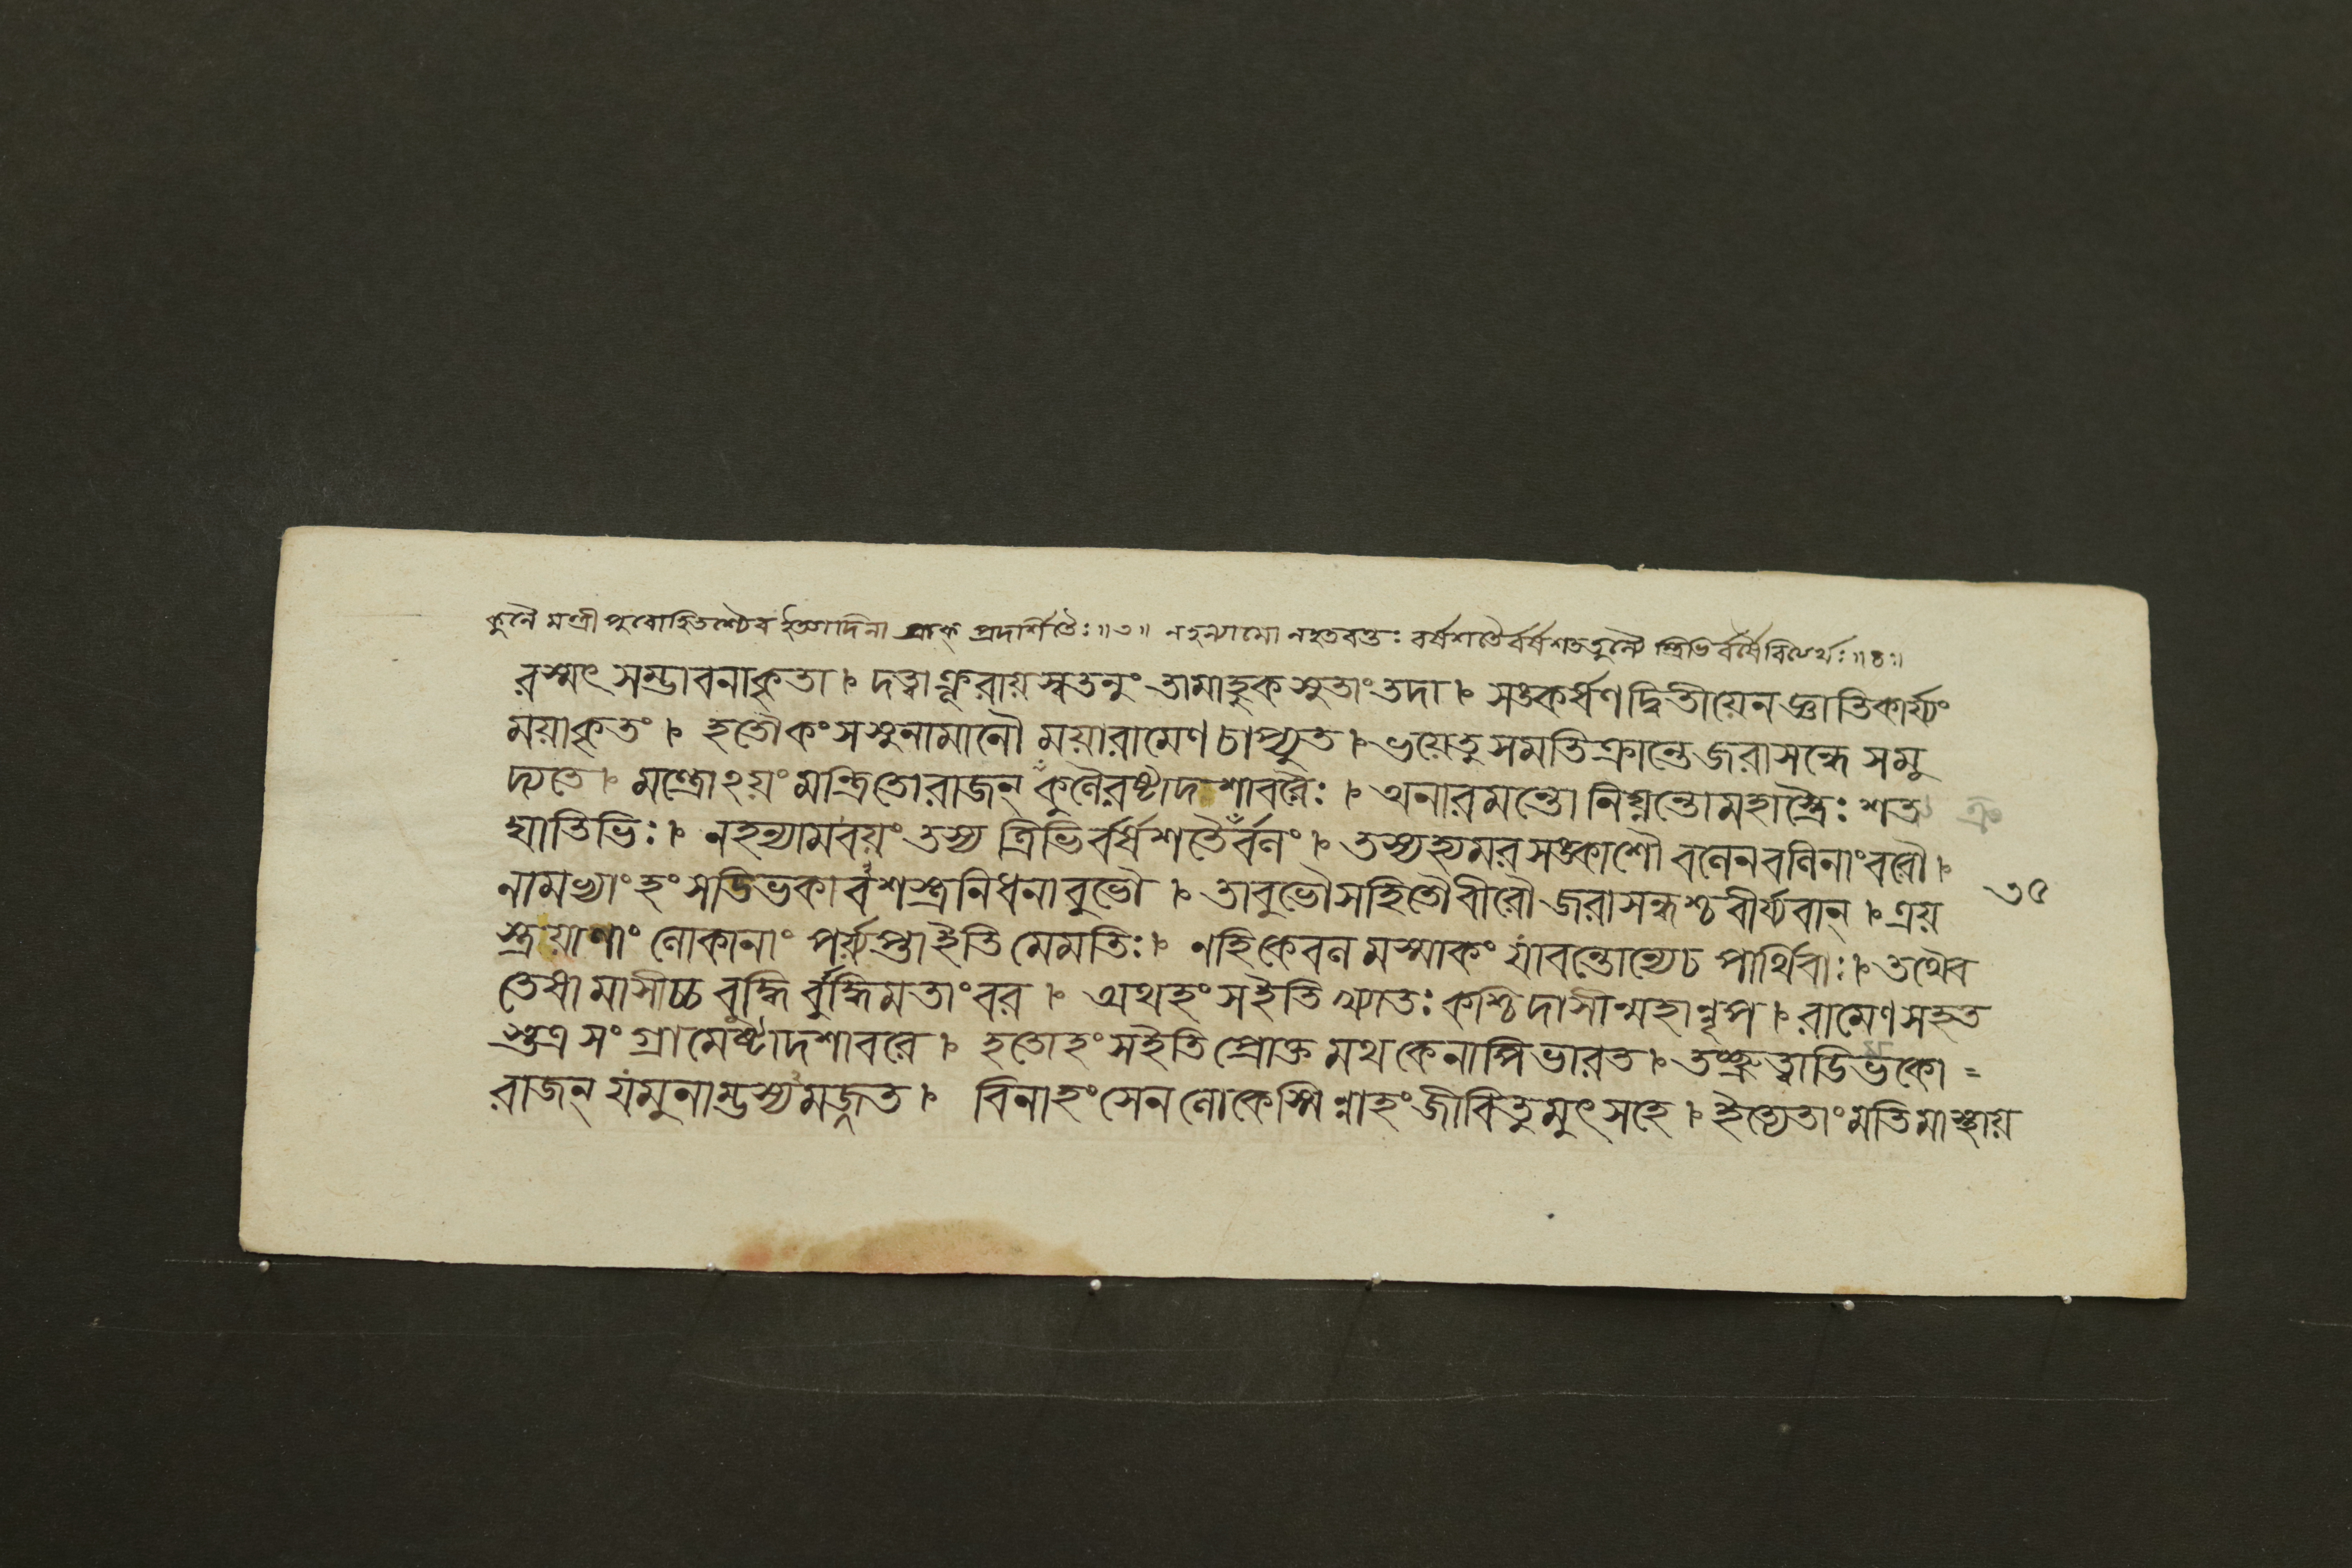 কুলৈ মন্ত্রী পুরোহিতশ্চৈব ইত্যাদিনা প্রাক্ প্রদর্শিতৈঃ॥৩॥ ন হন্যামো ন হতবন্তঃ বর্ষশতৈর্বর্ষশততুল্যৈ স্ত্রিভির্বর্ষৈরিত্যর্থঃ॥৪॥
রস্মৎ সম্ভাবনাকৃতা। দত্ত্বাক্রূরায়স্বতনুং তামাহুকসুতাংতদা। সঙ্কর্ষণদ্বিতীয়েনজ্ঞাতিকার্য্যং
ময়াকৃতং। হতৌকংসসুনামানৌ ময়ারামেণচাপ্যুত। ভয়েতুসমতিক্রান্তেজরাসন্ধে সমু
দ্যতে। মন্ত্রোঽয়ং মন্ত্রিতোরাজন্ কুলৈরষ্টাদশাবরৈঃ। অনারমন্তো নিঘ্নন্তোমহাস্ত্রৈঃ শত্রু
ঘাতিভিঃ। নহন্যামবয়ং তস্য ত্রিভির্বর্ষশতৈর্বলং। তস্যহ্যমরসঙ্কাশৌ বলেনবলিনাংবরৌ।
নামভ্যাং হংসডিভকাবশস্ত্রনিধনাবুভৌ। তাবুভৌসহিতৌবীরৌ জরাসন্ধশ্চবীর্য্যবান্। ত্রয়
স্ত্রয়াণাং লোকানাং পর্য্যাপ্তাইতি মেমতিঃ। নহিকেবল মস্মাকং যাবন্তোন্যেচ পার্থিবাঃ। তথৈব
তেষামাসীচ্চ বুদ্ধির্বুদ্ধিমতাংবর। অথহংস ইতি খ্যাতঃ কশ্চিদাসীন্মহান্নৃপ। রামেণ সহত
স্তত্র সংগ্রামেষ্টাদশাবরে। হতোহংসইতি প্রোক্ত মথ কেনাপিভারত। তচ্ছ্রুত্বাডিভকো=
রাজন্ যমুনাম্ভস্যমজ্জত। বিনাহংসেন লোকেস্মিন্নাহংজীবিতুমুৎসহে। ইত্যেতাংমতিমাস্থায়
৩৫